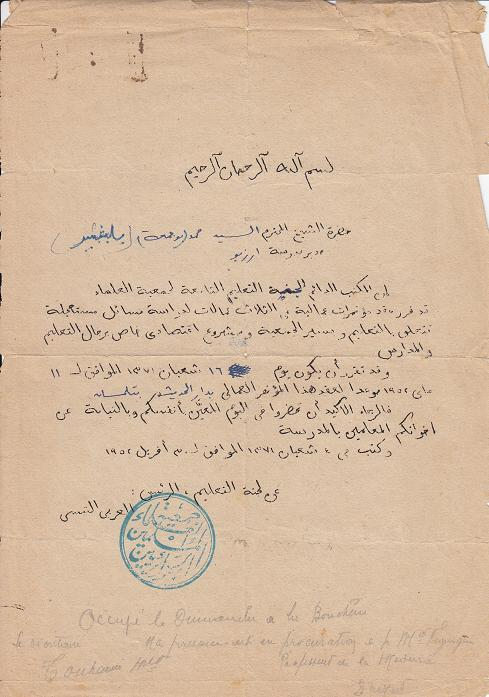 بسم الله الرحمان الرحيم
حضرة الشيخ المحترم السيد محمد (بوجمعة) (بلبشير)
مدير مدرسة ارزيو
إن المكتب الدائم للجنة التعليم التابعة لجمعية العلماء
قد قرر عقد مؤتمرات عمالية في الثلاث عمالات لدراسة مسائل مستعجلة
تتعلق بالتعليم وبسير الجمعية ومشروع اقتصادي خاص برجال التعليم
والمدارس
وقد تقرر أن يكون يوم ١٦ شعبان ١٣٧١ الموافق لـ ١١
ماي ١٩٥٢ موعدا لعقد هذا المؤتمر العمالي بدار الحديث بتلمسان
فالرجاء الأكيد أن تحضروا في اليوم المعين بأنفسكم وبالنيابة عن
اخوانكم المعلمين بالمدرسة
وكتب في ٤ شعبان ١٣٧١ الموافق لـ ٣٠ أفريل ١٩٥٢
عن لجنة التعليم، الرئيس:
العربي التبسي
جمعية العلماء المسلمين الجزائريين
Occupé le Dimanche à
procuration à
Professeur de la